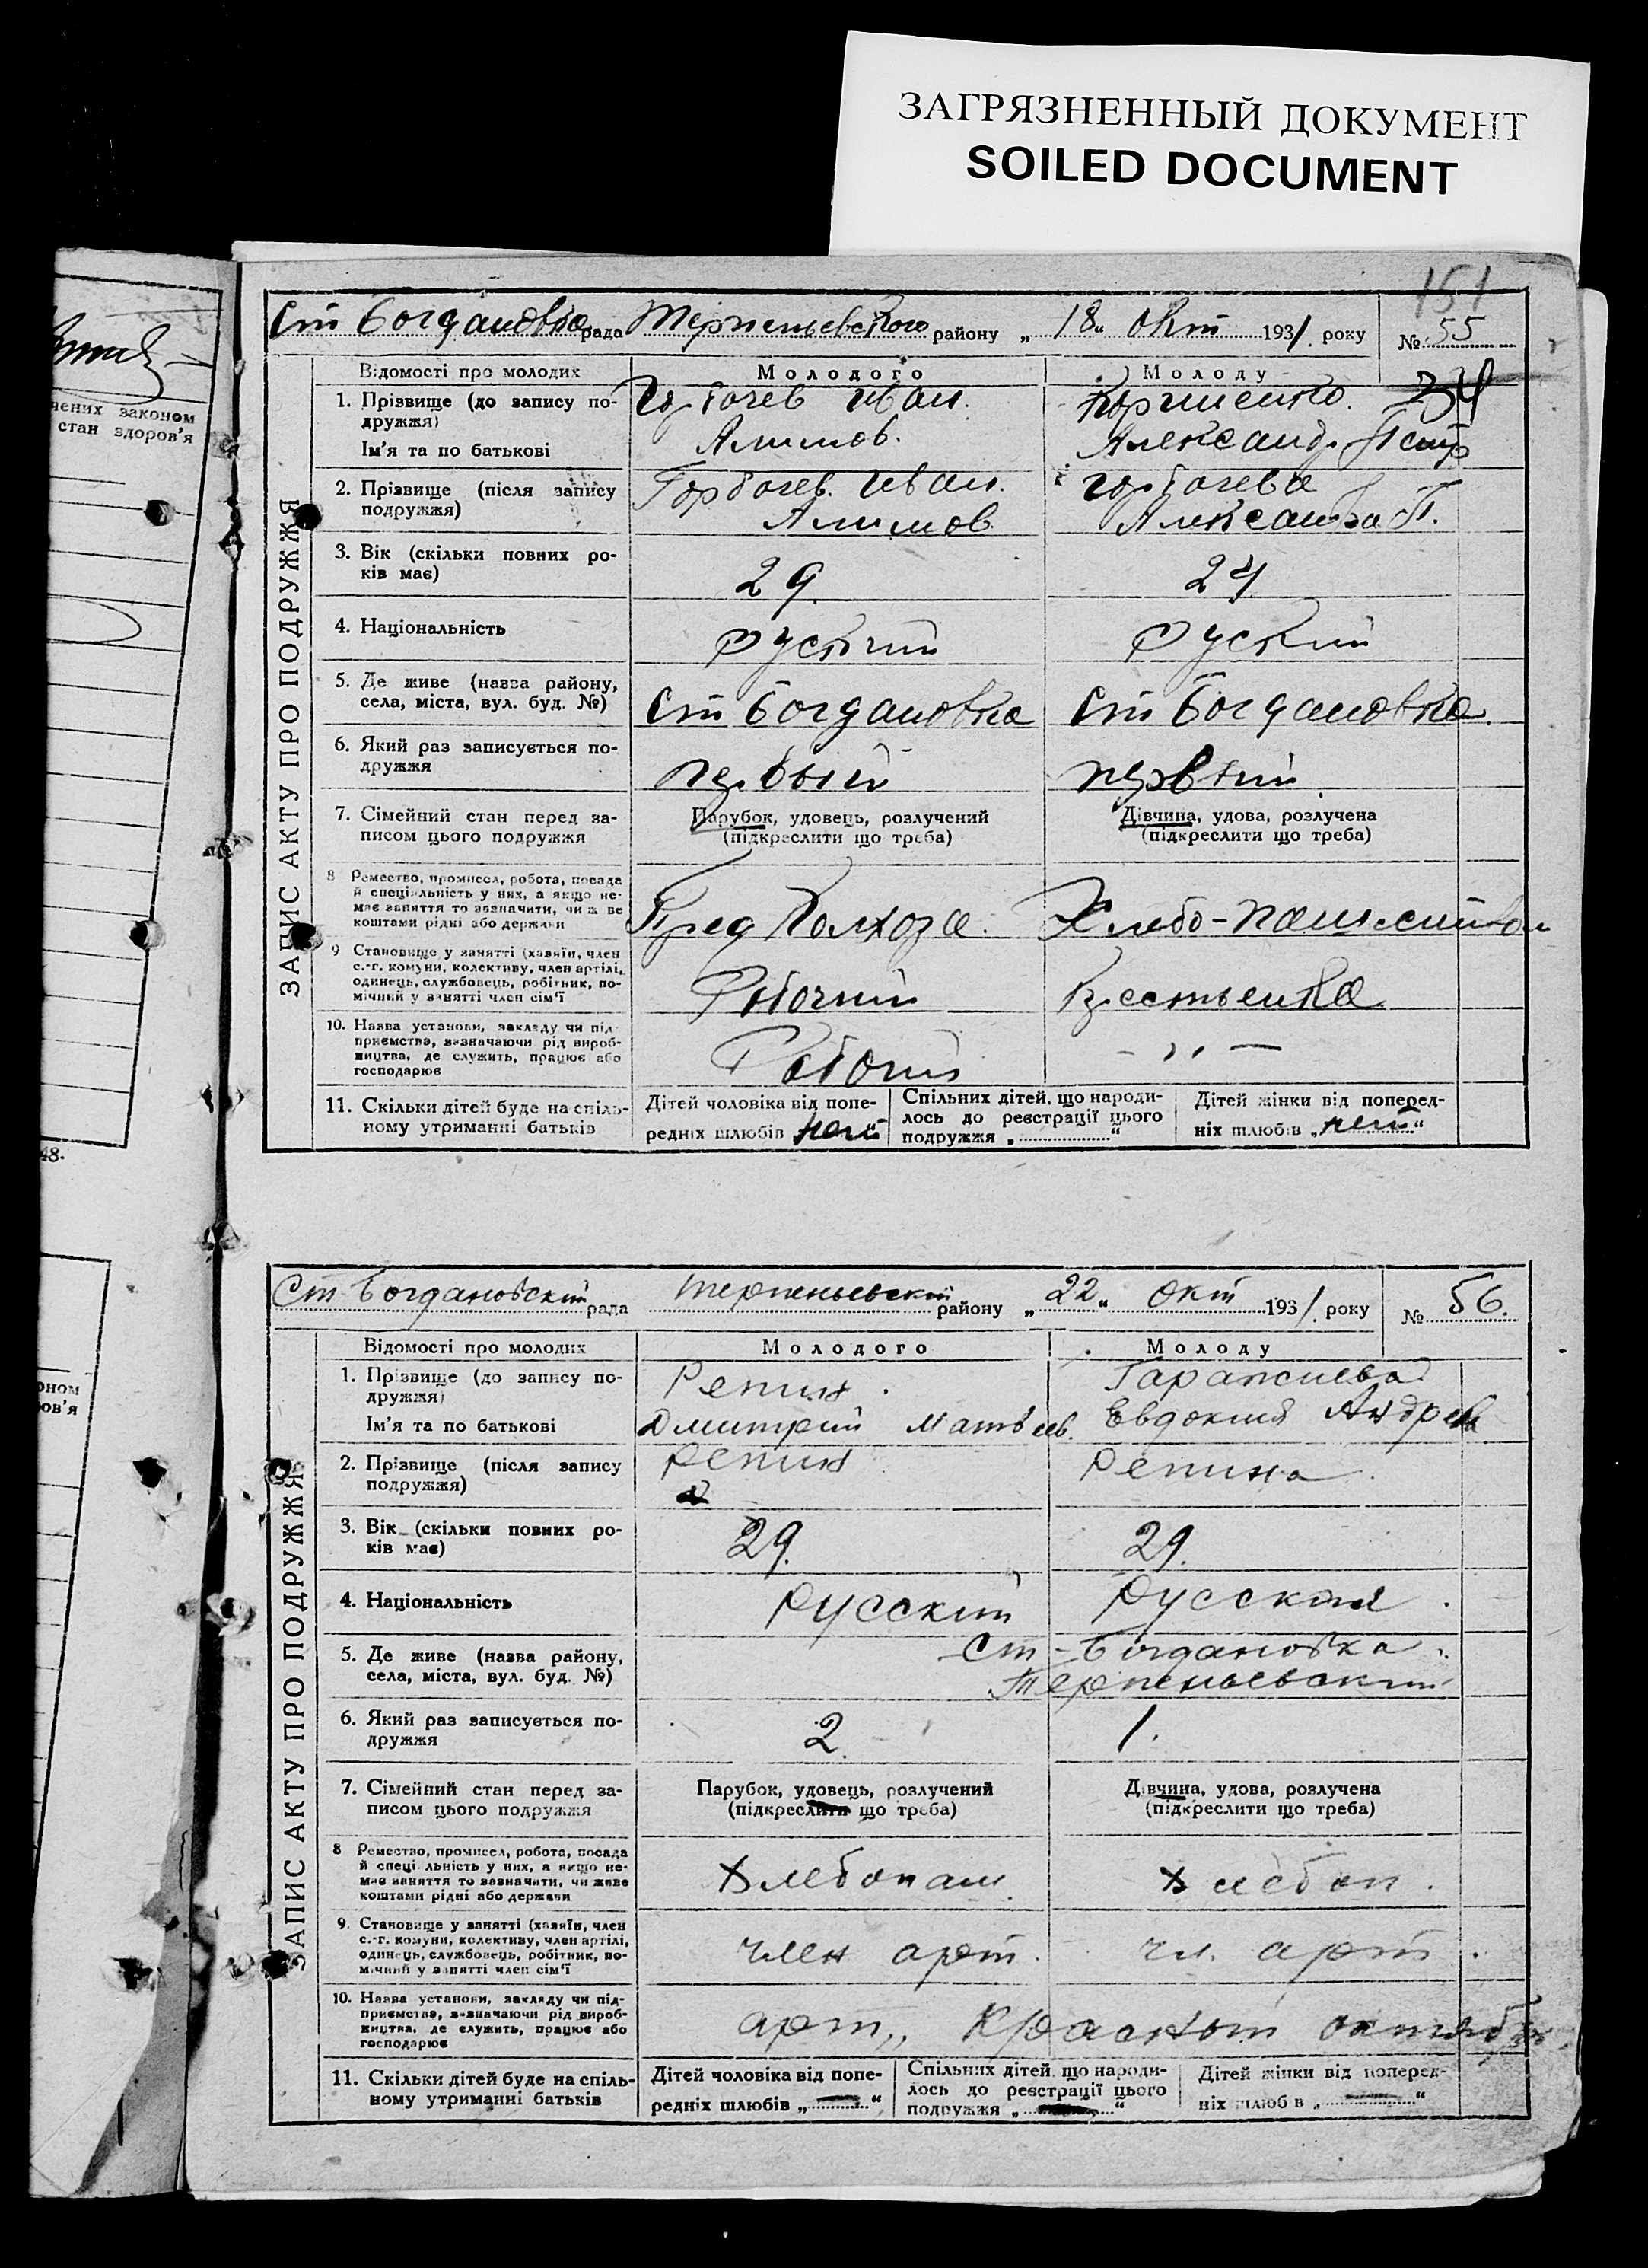 ЗАГРЯЗНЕННЫЙ ДОКУМЕНТ
SOILED DOCUMENT
151
Ст Богдановка рада Терпеньевского району „18“ окт 1931. року № 55
Відомості про молодих Молодого Молоду
34
ЗАПИС АКТУ ПРО ПОДРУЖЖЯ
1. Прізвище (до запису по-
дружжя)
Ім'я та по батькові
Горбачев Иван.
Алимов.
Александ. Петр
2. Прізвище (після запису
подружжя)
Горбачев. Иван.
Алимов
Горбачева
Александра П.
3. Вік (скільки повних ро-
ків має)
29.
24
4. Національність
Руский
Руский
5. Де живе (назва району,
села, міста, вул. буд. №)
Ст Богдановка
Ст Богдановка.
6. Який раз записується по-
дружжя
первый
первый
7. Сімейний стан перед за-
писом цього подружжя
Парубок, удовець, розлучений
(підкреслити що треба)
Дівчина, удова, розлучена
(підкреслити що треба)
8 Ремество, промисел, робота, посада
й спеціяльність у них, а якщо не-
має заняття то зазначити, чи живе
коштами рідні або держави
Пред Колхоза.
Хлебо-
9 Становище у занятті (хазяїн, член
с.-г. комуни, колективу, член артілі,
одинець, службовець, робітник, по-
мічний у занятті член сім'ї
Рабочий
Крестьенка
10. Назва установи, закладу чи під-
приємства, зазначаючи рід вироб-
ництва, де служить, працює або
господарює
- ,, -
11. Скільки дітей буде на спіль-
ному утриманні батьків
Дітей чоловіка від попе-
редніх шлюбів „нет“
Спільних дітей, що народи-
лось до реєстрації цього
подружжя „ “
Дітей жінки від поперед-
ніх шлюбів „нет“
48.
Ст Богдановский рада Терпеньевский району „22“ окт 1931. року № 56.
Відомості про молодих Молодого Молоду
ЗАПИС АКТУ ПРО ПОДРУЖЖЯ
1. Прізвище (до запису по-
дружжя)
Ім'я та по батькові
Репин.
Дмитрий Матвеев.
Евдокия Андрев
2. Прізвище (після запису
подружжя)
Репин
Репина
3. Вік (скільки повних ро-
ків має)
29.
29.
4. Національність
Русский
Русская.
5. Де живе (назва району,
села, міста, вул. буд. №)
Ст-Богдановка
Терпеньевский
6. Який раз записується по-
дружжя
2.
1.
7. Сімейний стан перед за-
писом цього подружжя
Парубок, удовець, розлучений
(підкреслити що треба)
Дівчина, удова, розлучена
(підкреслити що треба)
8 Ремество, промисел, робота, посада
й спеціяльність у них, а якщо не-
має заняття то зазначити, чи живе
коштами рідні або держави
Хлебопаш.
Хлебоп.
9. Становище у занятті (хазяїн, член
с.-г. комуни, колективу, член артілі,
одинець, службовець, робітник, по-
мічний у занятті член сім'ї
член арт.
чл. арт.
10. Назва установи, закладу чи під-
приємства, зазначаючи рід вироб-
ництва, де служить, працює або
господарює
арт,, Красный октябрь
11. Скільки дітей буде на спіль-
ному утриманні батьків
Дітей чоловіка від попе-
редніх шлюбів „ “
Спільних дітей що народи-
лось до реєстрації цього
подружжя „ “
Дітей жінки від поперед-
ніх шлюбів „ “